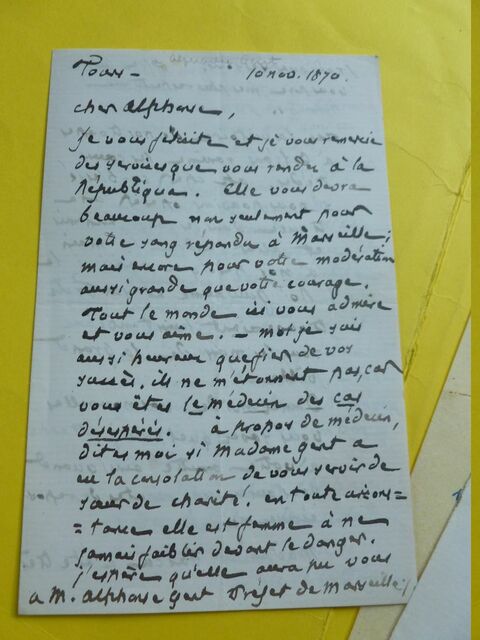 Tours — 10 nov. 1870.
cher Alphonse,
je vous félicite et je vous remercie
des services que vous rendez à la
République. Elle vous devra
beaucoup non seulement pour
votre sang répandu à Marseille;
mais encore pour votre modération
aussi grande que votre courage.
Tout le monde ici vous admire
et vous aime. — moi je suis
aussi heureux que fier de vos
succès. ils ne m'étonnent pas, car
vous êtes le médecin des cas
désespérés. à propos de médecin,
dites moi si Madame gent a
eu la consolation de vous servir de
sœur de charité. en toute circons=
=tance elle est femme à ne
jamais faiblir devant le danger.
j'espère qu'elle aura pu vous
a M. Alphonse gent Préfet de Marseille